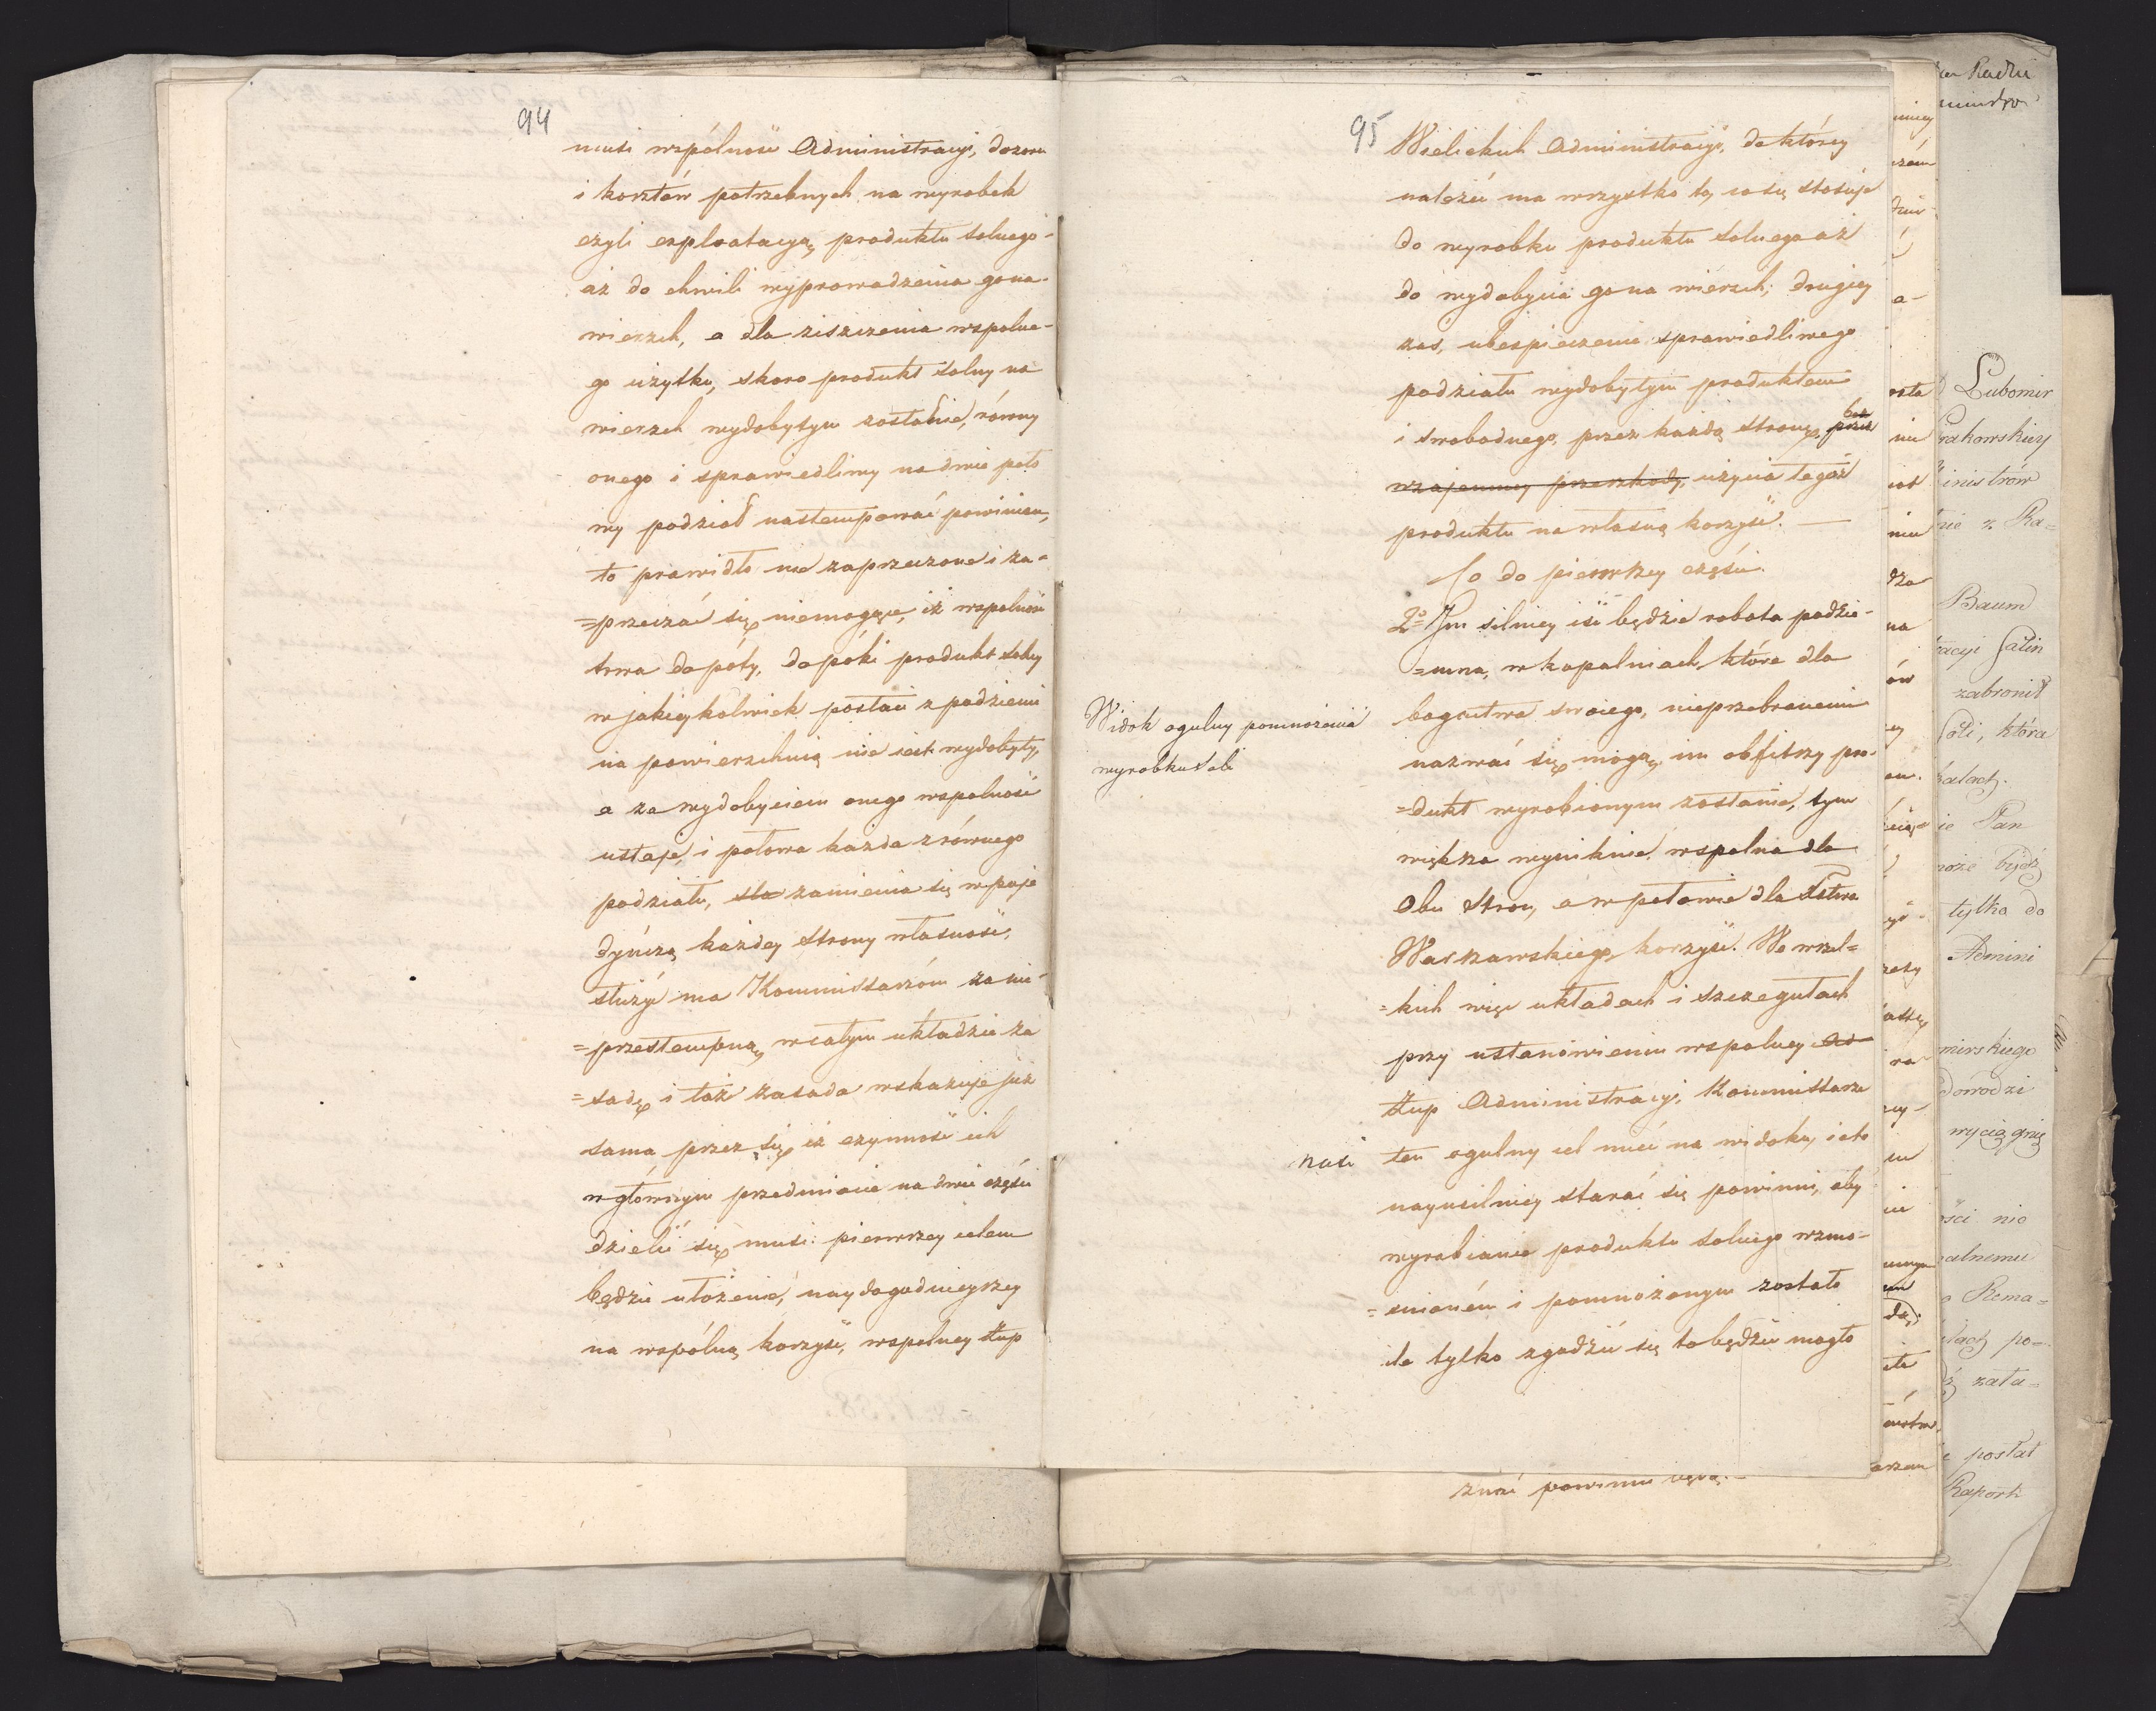 94
musi wspólność Administracyi, dozoru
i kosztów potrzebnych na wyrobek
czyli exploatacyą produktu solnego
aż do chwili wyprowadzenia go na
wierzch, a dla ziszczenia wspolne-
go użytku, skoro produkt solny na
wierzch wydobytym zostanie, równy
onego i sprawiedliwy na dwie poło
wy podział nastempować powinien,
to prawidło nie zaprzeczone i za-
=przeczać się niemogące, iż wspolność
trwa do póty, dopóki produkt solny
w jakieykolwiek postaci z podziemi
na powierzchnią nie iest wydobyty,
a za wydobyciem onego wspolność
ustaje, i połowa każda z równego
podziału, sta zamienia się w poje
dyńczą każdey strony własność,
służyć ma Kommissarzóm za nie-
=przestempną w całym układzie za
=sadę i taż zasada wskazuje już
sama przez się iż czynność ich
w głównym przedmiocie na dwie części
dzielić się musi: pierwszey celem
będzie ułożenie, naydogodnieyszey
na wspólną korzyść, wspolney Żup
95
Wielickich Administracyi, do którey
należeć ma wszystko to, co się stosuje
do wyrobku produktu solnego aż
do wydobycia go na wierzch; drugiey
zas, ubespieczenie sprawiedliwego
podziału wydobytym produktem
i swobodnego, przez każdą stronę, bez
przez
wzajemney przeszkody, użycia tegoż
produktu na własną korzyść. —
Co do pierwszey części.
2o Im silniey iść będzie robota podzie-
=mna, w kopalniach, które dla
bogactwa swoiego, nieprzebranemi
nazwać się mogą, im obfitszy pro-
=dukt wyrobionym zostanie, tym
większa wyniknie wspolna dla
Obu Stron, a w połowie dla Xstwa
Warszawskiego, korzyść. We wszel=
=kich więc układach i szczegułach
przy ustanowieniu wspolney Ad
Żup Administracyi, Kommissarze
nasi
ten ogulny cel mieć na widoku, i o to
nayusilniey starać się powinni, aby
wyrabianie produktu solnego wzmo-
=cnioném i pomnożonym zostało
ile tylko zgodzić się to będzie mogło
Widok ogulny pomnożenia
wyrobku Soli
znać powinni będą. -
Lubomir
Krakowskiey
Ministrów
Baum
Salin
zabronił
Soli, która
Pan
może bydź
tylko do
Admini
dowodzi
wyciągnię
nie
Rema=
po=
zała=
postał
Raport